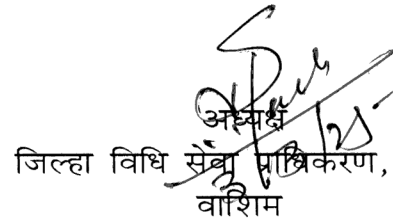 अध्यक्ष
जिल्हा विधि सेवा प्राधिकरण,
वाशिम